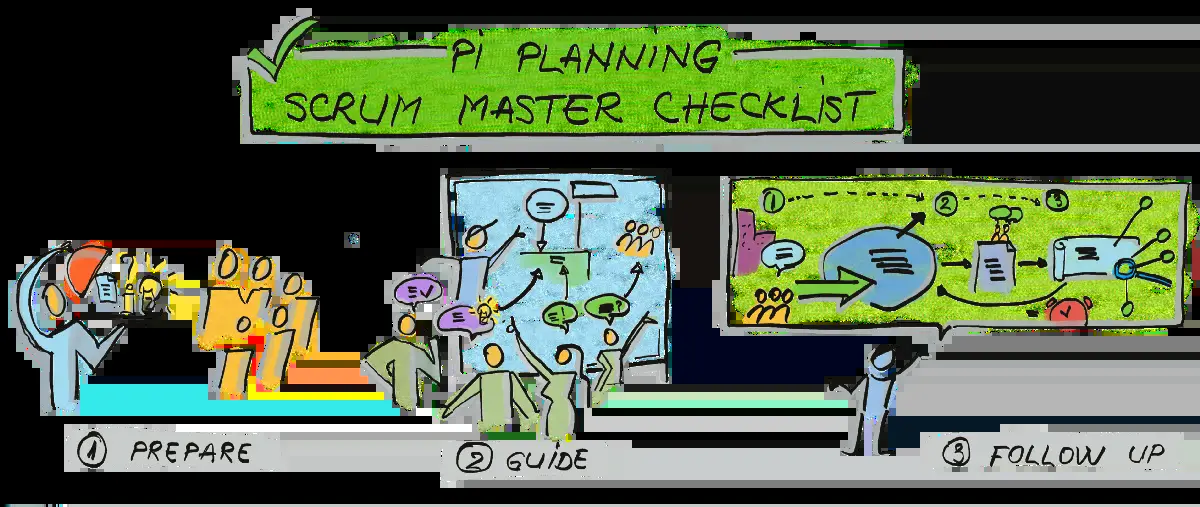 Pi PLANNING
SCRUM MASTER CHECKLiST
1 2 3
1 PREPARE
2 GUiDE
3 FOLLOW UP